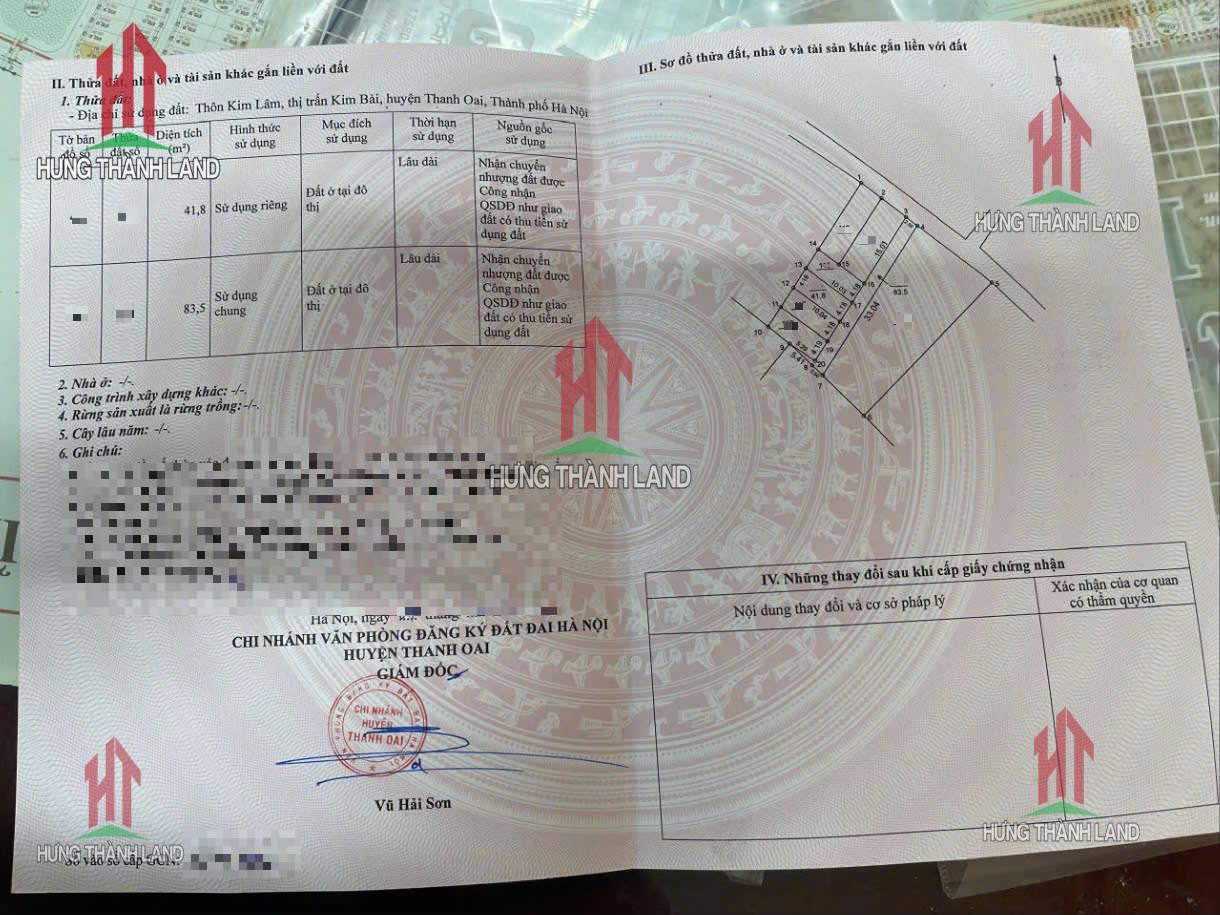 II. Thửa đất, nhà ở và tài sản khác gắn liền với đất
1. Thửa đất:
- Địa chỉ sử dụng đất: Thôn Kim Lâm, thị trấn Kim Bài, huyện Thanh Oai, Thành phố Hà Nội
Tờ bản đồ số
Thửa đất số
Diện tích (m²)
Hình thức sử dụng
Mục đích sử dụng
Thời hạn sử dụng
Nguồn gốc sử dụng
41,8
Sử dụng riêng
Đất ở tại đô thị
Lâu dài
Nhận chuyển
nhượng đất được
Công nhận
QSDĐ như giao
đất có thu tiền sử
dụng đất
83,5
Sử dụng chung
Đất ở tại đô thị
Lâu dài
Nhận chuyển
nhượng đất được
Công nhận
QSDĐ như giao
đất có thu tiền sử
dụng đất
2. Nhà ở: -/-.
3. Công trình xây dựng khác: -/-.
4. Rừng sản xuất là rừng trồng:-/-.
5. Cây lâu năm: -/-.
6. Ghi chú:
Hà Nội, ngày
CHI NHÁNH VĂN PHÒNG ĐĂNG KÝ ĐẤT ĐAI HÀ NỘI
HUYỆN THANH OAI
GIÁM ĐỐC
CHI NHÁNH
HUYỆN
THANH OAI
Vũ Hải Sơn
Số vào sổ cấp GCN:
III. Sơ đồ thửa đất, nhà ở và tài sản khác gắn liền với đất
B
1
2
3
4
5
6
7
8
9
10
11
12
13
14
15
16
17
18
19
20
15.01
33.04
83.5
41,8
10.03
10.04
4.18
4.18
4.18
4.18
4.19
5.29
5.41
IV. Những thay đổi sau khi cấp giấy chứng nhận
Nội dung thay đổi và cơ sở pháp lý
Xác nhận của cơ quan
có thẩm quyền
HƯNG THÀNH LAND
HƯNG THÀNH LAND
HƯNG THÀNH LAND
HƯNG THÀNH LAND
HƯNG THÀNH LAND